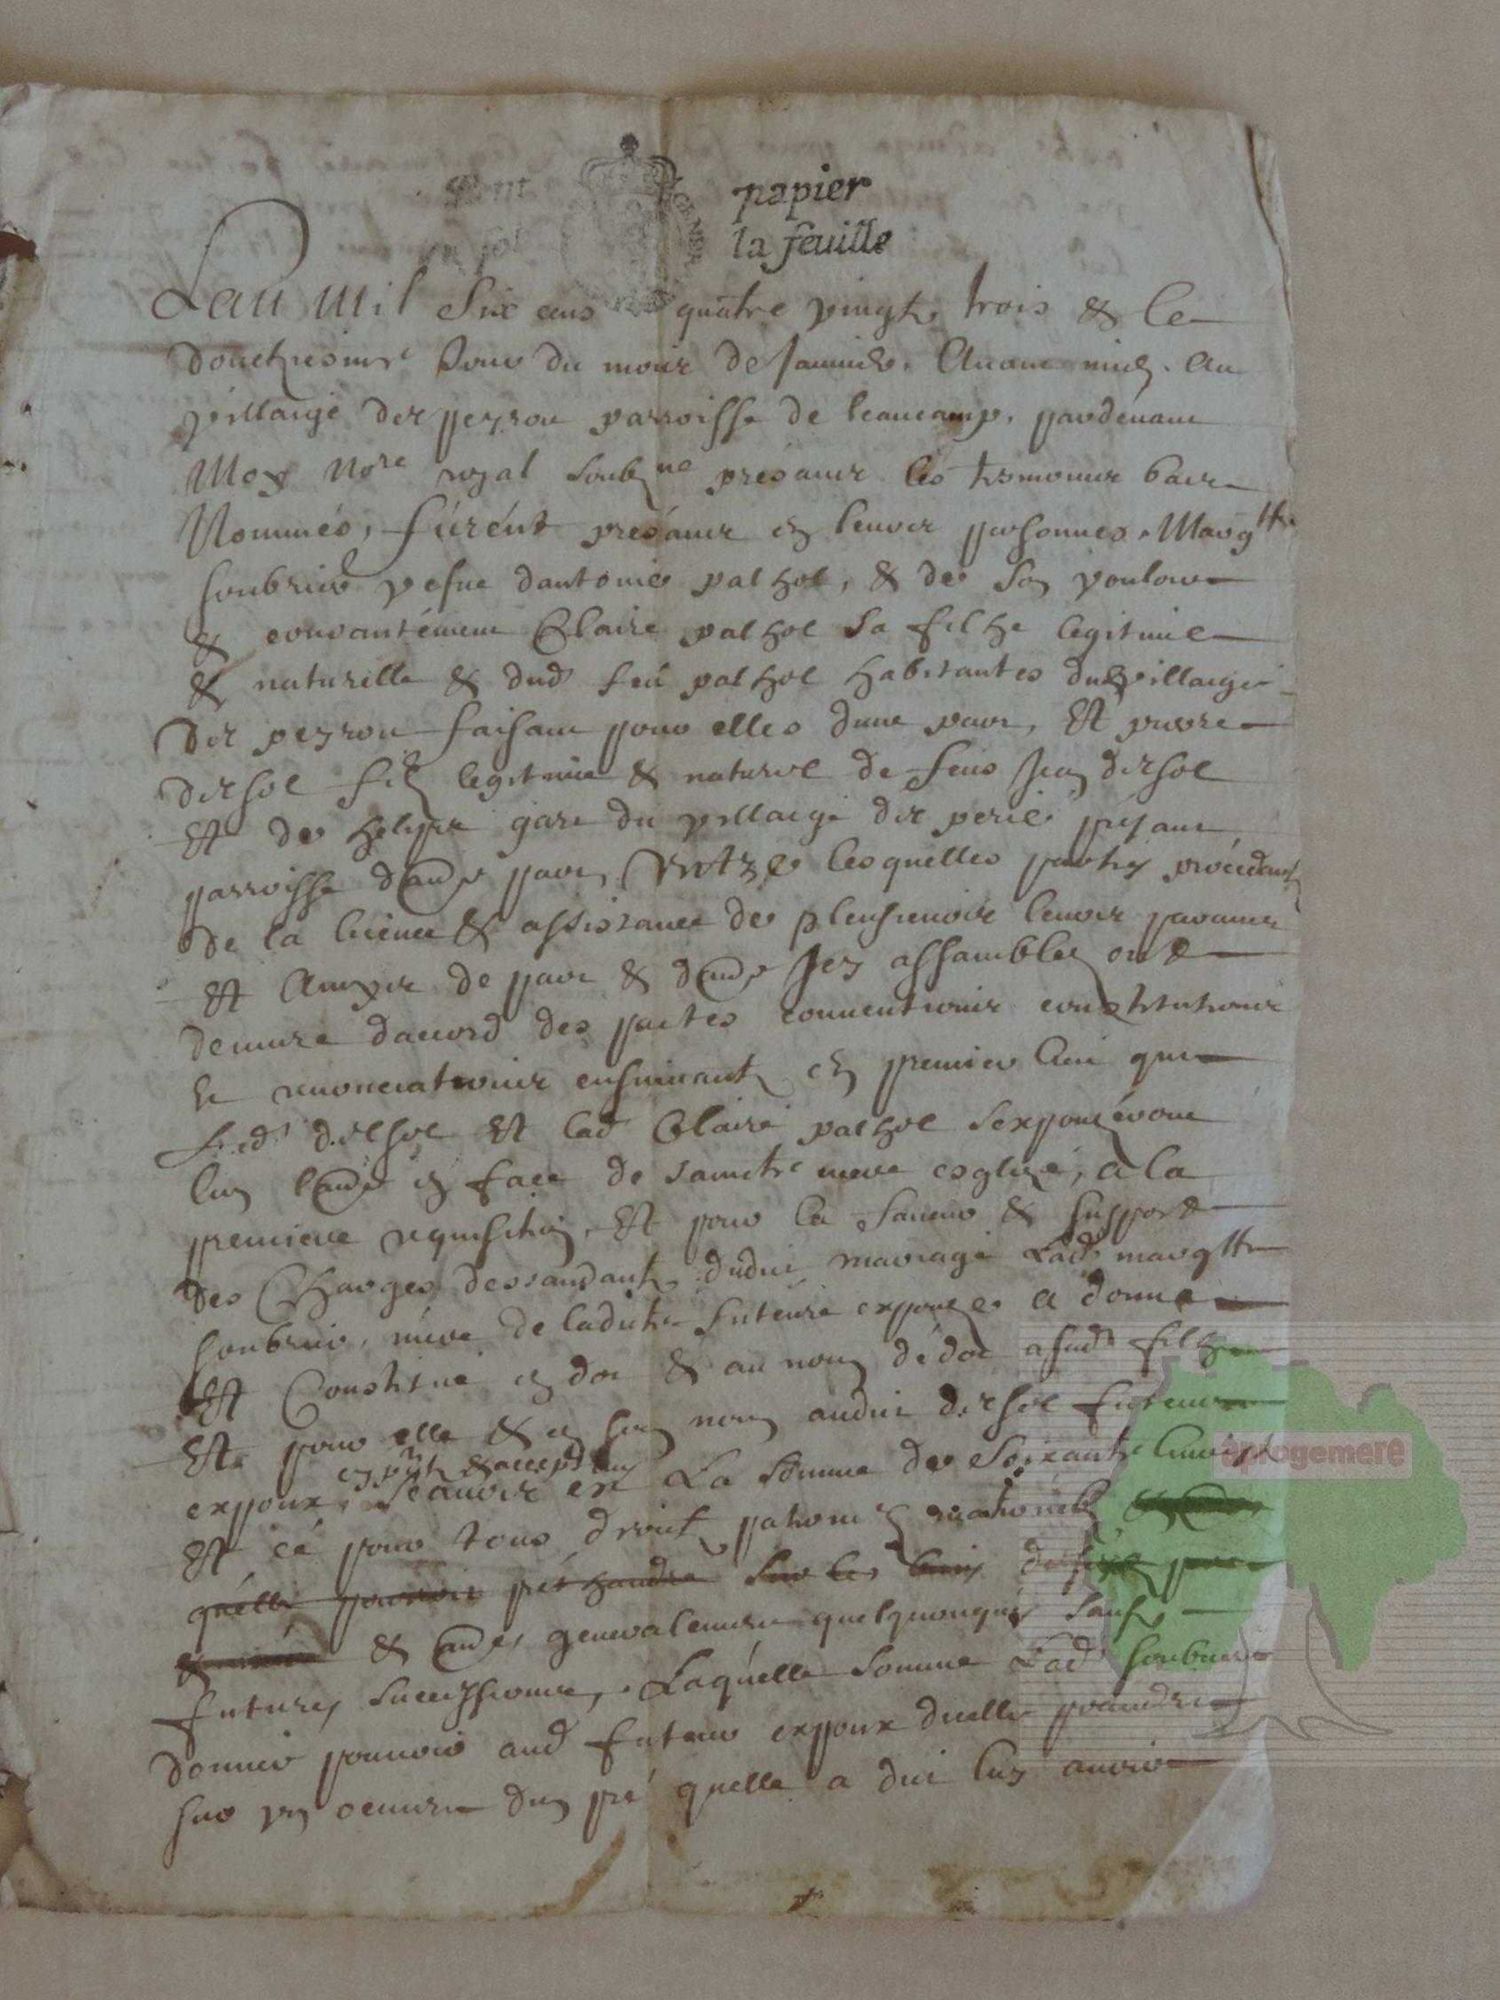 papier
la feuille
Lan mil six cens quatre vingt trois & le
douctziesme jour du mois de Janvier avant midy au
villaige des peyrou parroisse de beaucamp, pardevant
Moy No.re royal soub.ne presans les tesmoins bas
Nommés, furent presans en leurs personnes Marg.tte
vefve dantoine palhol, & de son vouloir
& consantement Claire palhol sa filhe legitime
& naturelle & dud feu palhol habitantes dud villaige
des peyrou faisant pour elles dune part, Et pierre
delsol filz legitime & naturel de feus Jean delsol
Et de du villaige del
parroisse daud.e part, lesquelles parties procedant
de la licence & assistance de pleusieurs leurs parans
Et amys de part & daud.e Icy assambles ont
demure daccord des pactes conventions constitutions
& renonciations ensuivants en premier lieu que
Led delsol Et lad Claire palhol sexpouzeront
lun laud.e en face de saincte mere esglize, a la
premiere requisition, Et pour la faveur & support
des Charges dessandants dudit mariage Lad margtte
mere de ladicte future expouze a donné
Et Constitué en dot & au nom de dot a sad filhe
Et pour elle & en son nom audit delsol futeur
expoux, scavoir est La somme de soixante livres
Et ce pour tous droits paternels maternels
quelle
& aud.es generalement quelquonques sauf
futures successions, Laquelle somme Lad
donne pouvoir aud futeur expoux dicelle prandre
sur un oeuvre dun pré quelle a dit luy avoir
aprogemere